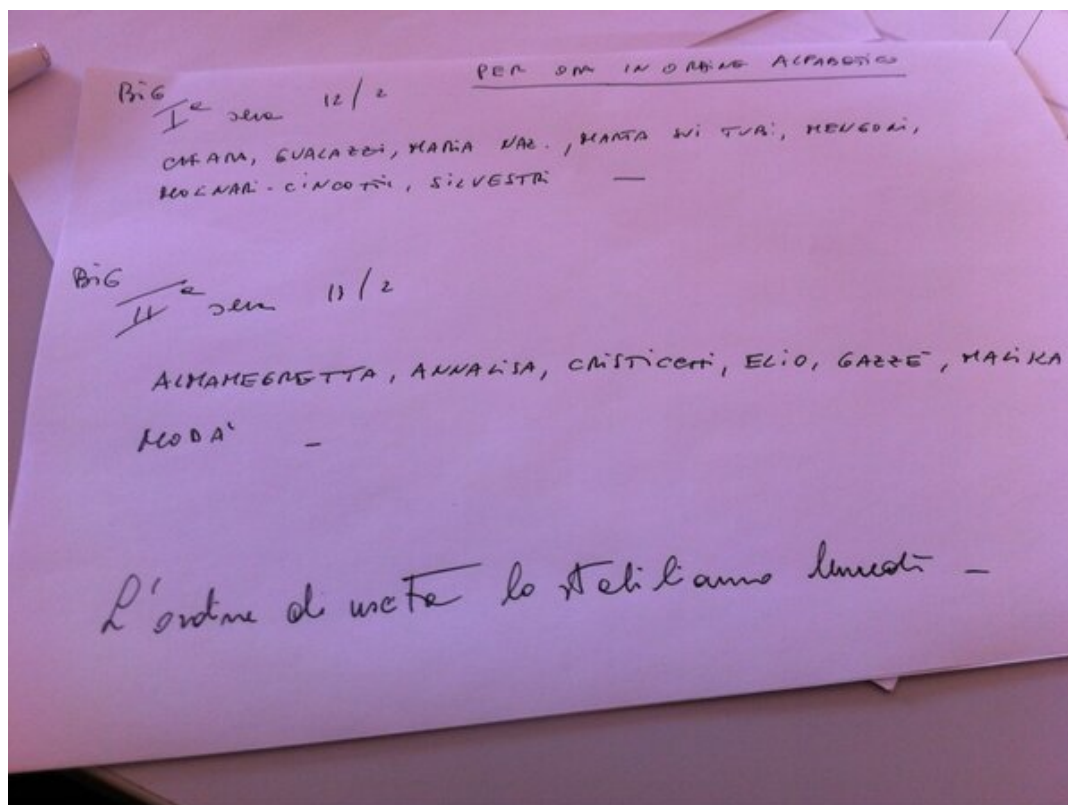 PER ORA IN ORDINE ALFABETICO
BiG
Iª sera 12/2
CHIARA, GUALAZZI, MARIA NAZ., MARTA SUI TUBI, MENGONI,
MOLINARI-CINCOTTI, SILVESTRI —
BiG
IIª sera 13/2
ALMAMEGRETTA, ANNALISA, CRISTICCHI, ELIO, GAZZÈ, MALIKA
MODA' –
L'ordine di uscita lo stabiliamo lunedì –